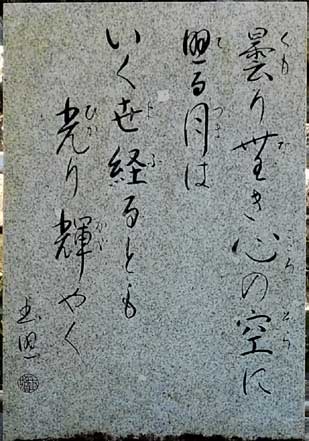 くも な こころ そら
曇り無き心の空に
て つき
照る月は
よ ふ
いく世経るとも
ひか かが
光り輝やく